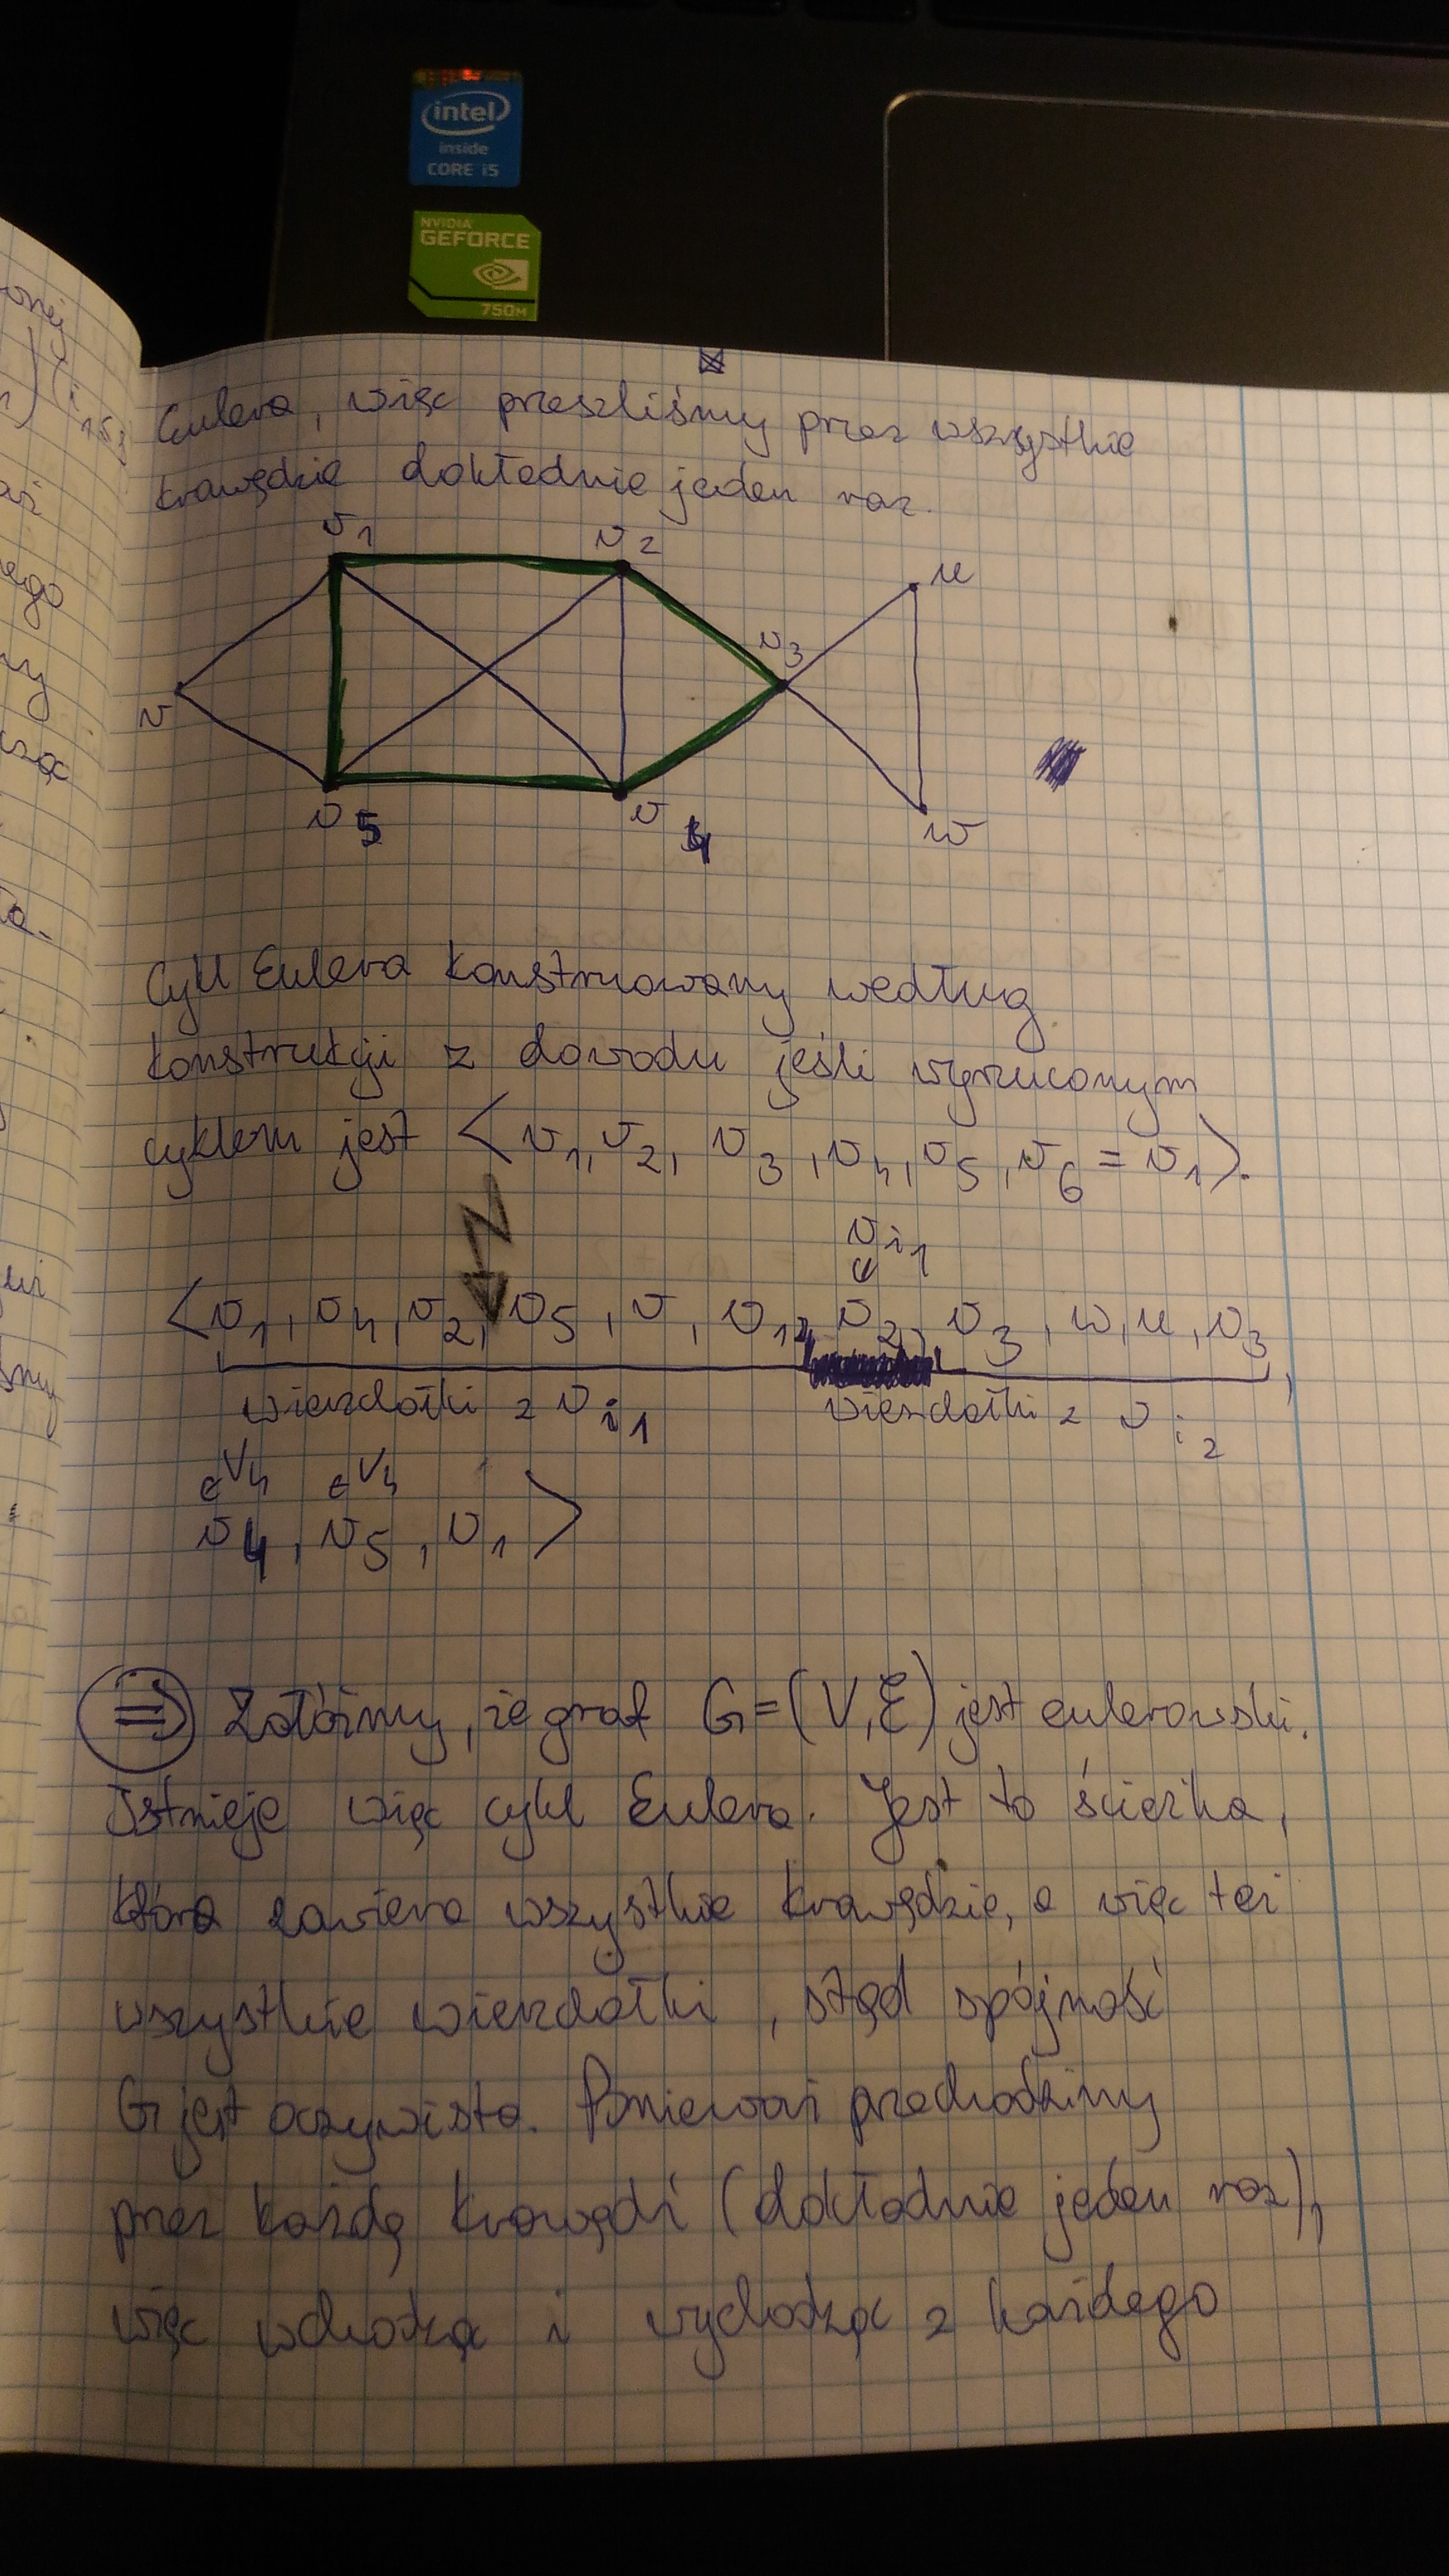 intel
inside
CORE i5
NVIDIA
GEFORCE
750M
Eulera, więc przeszliśmy przez wszystkie
krawędzie dokładnie jeden raz.
v1 v2 u
v3
v
v5 v4 w
Cykl Eulera konstruowany według
konstrukcji z dowodu jeśli wyrzuconym
cyklem jest <v1, v2, v3, v4, v5, v6 = v1>.
vi1
<v1, v4, v2, v5, v, v1, v2, v3, w, u, v3,
wierzchołki z vi1 wierzchołki z vi2
∈V4 ∈V4
v4, v5, v1>
⇒ Załóżmy, że graf G=(V,E) jest eulerowski.
Istnieje więc cykl Eulera. Jest to ścieżka,
która zawiera wszystkie krawędzie, a więc też
wszystkie wierzchołki, stąd spójność
G jest oczywista. Ponieważ przechodzimy
przez każdą krawędź (dokładnie jeden raz),
więc wchodząc i wychodząc z każdego